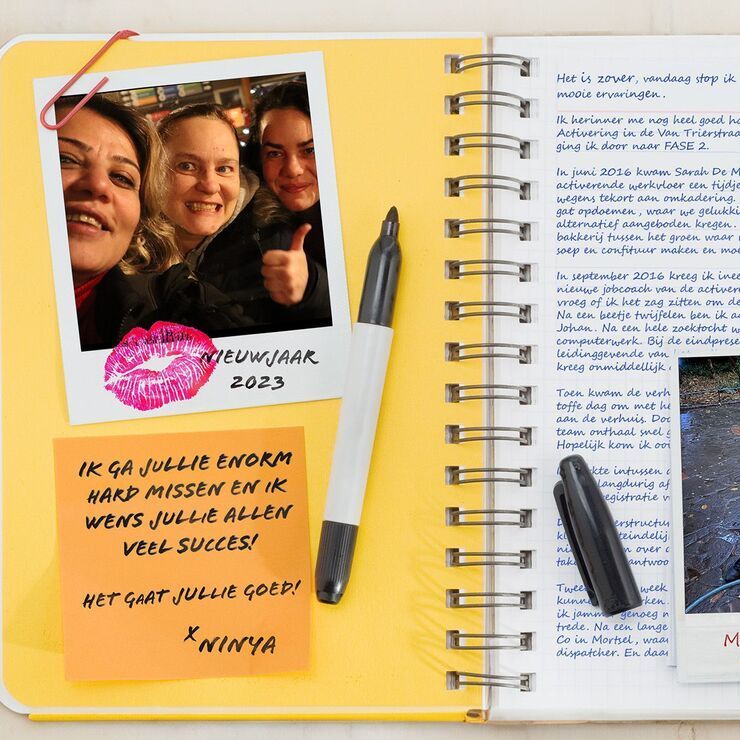 NIEUWJAAR
2023
IK GA JULLIE ENORM
HARD MISSEN EN IK
WENS JULLIE ALLEN
VEEL SUCCES!
HET GAAT JULLIE GOED!
X NINYA
Het is zover, vandaag stop ik
mooie ervaringen.
Ik herinner me nog heel goed
Activering in de Van
ging ik door naar FASE 2.
In juni 2016 kwam Sarah De
activerende werkvloer een tijdje
wegens tekort aan omkadering.
gat opdoemen, waar we
alternatief aangeboden kregen.
bakkerij tussen het groen waar
soep en confituur maken en
In september 2016 kreeg ik
nieuwe jobcoach van de
vroeg of ik het zag zitten om
Na een beetje twijfelen ben ik
Johan. Na een hele zoektocht
computerwerk. Bij de
leidinggevende van
kreeg onmiddellijk
Toen kwam de
toffe dag om met
aan de verhuis.
team onthaal snel
Hopelijk kom ik
intussen
langdurig
registratie
over
Twee week
kunn
ik genoeg
trede. Na een lange
Co in Mortsel,
dispatcher. En
M